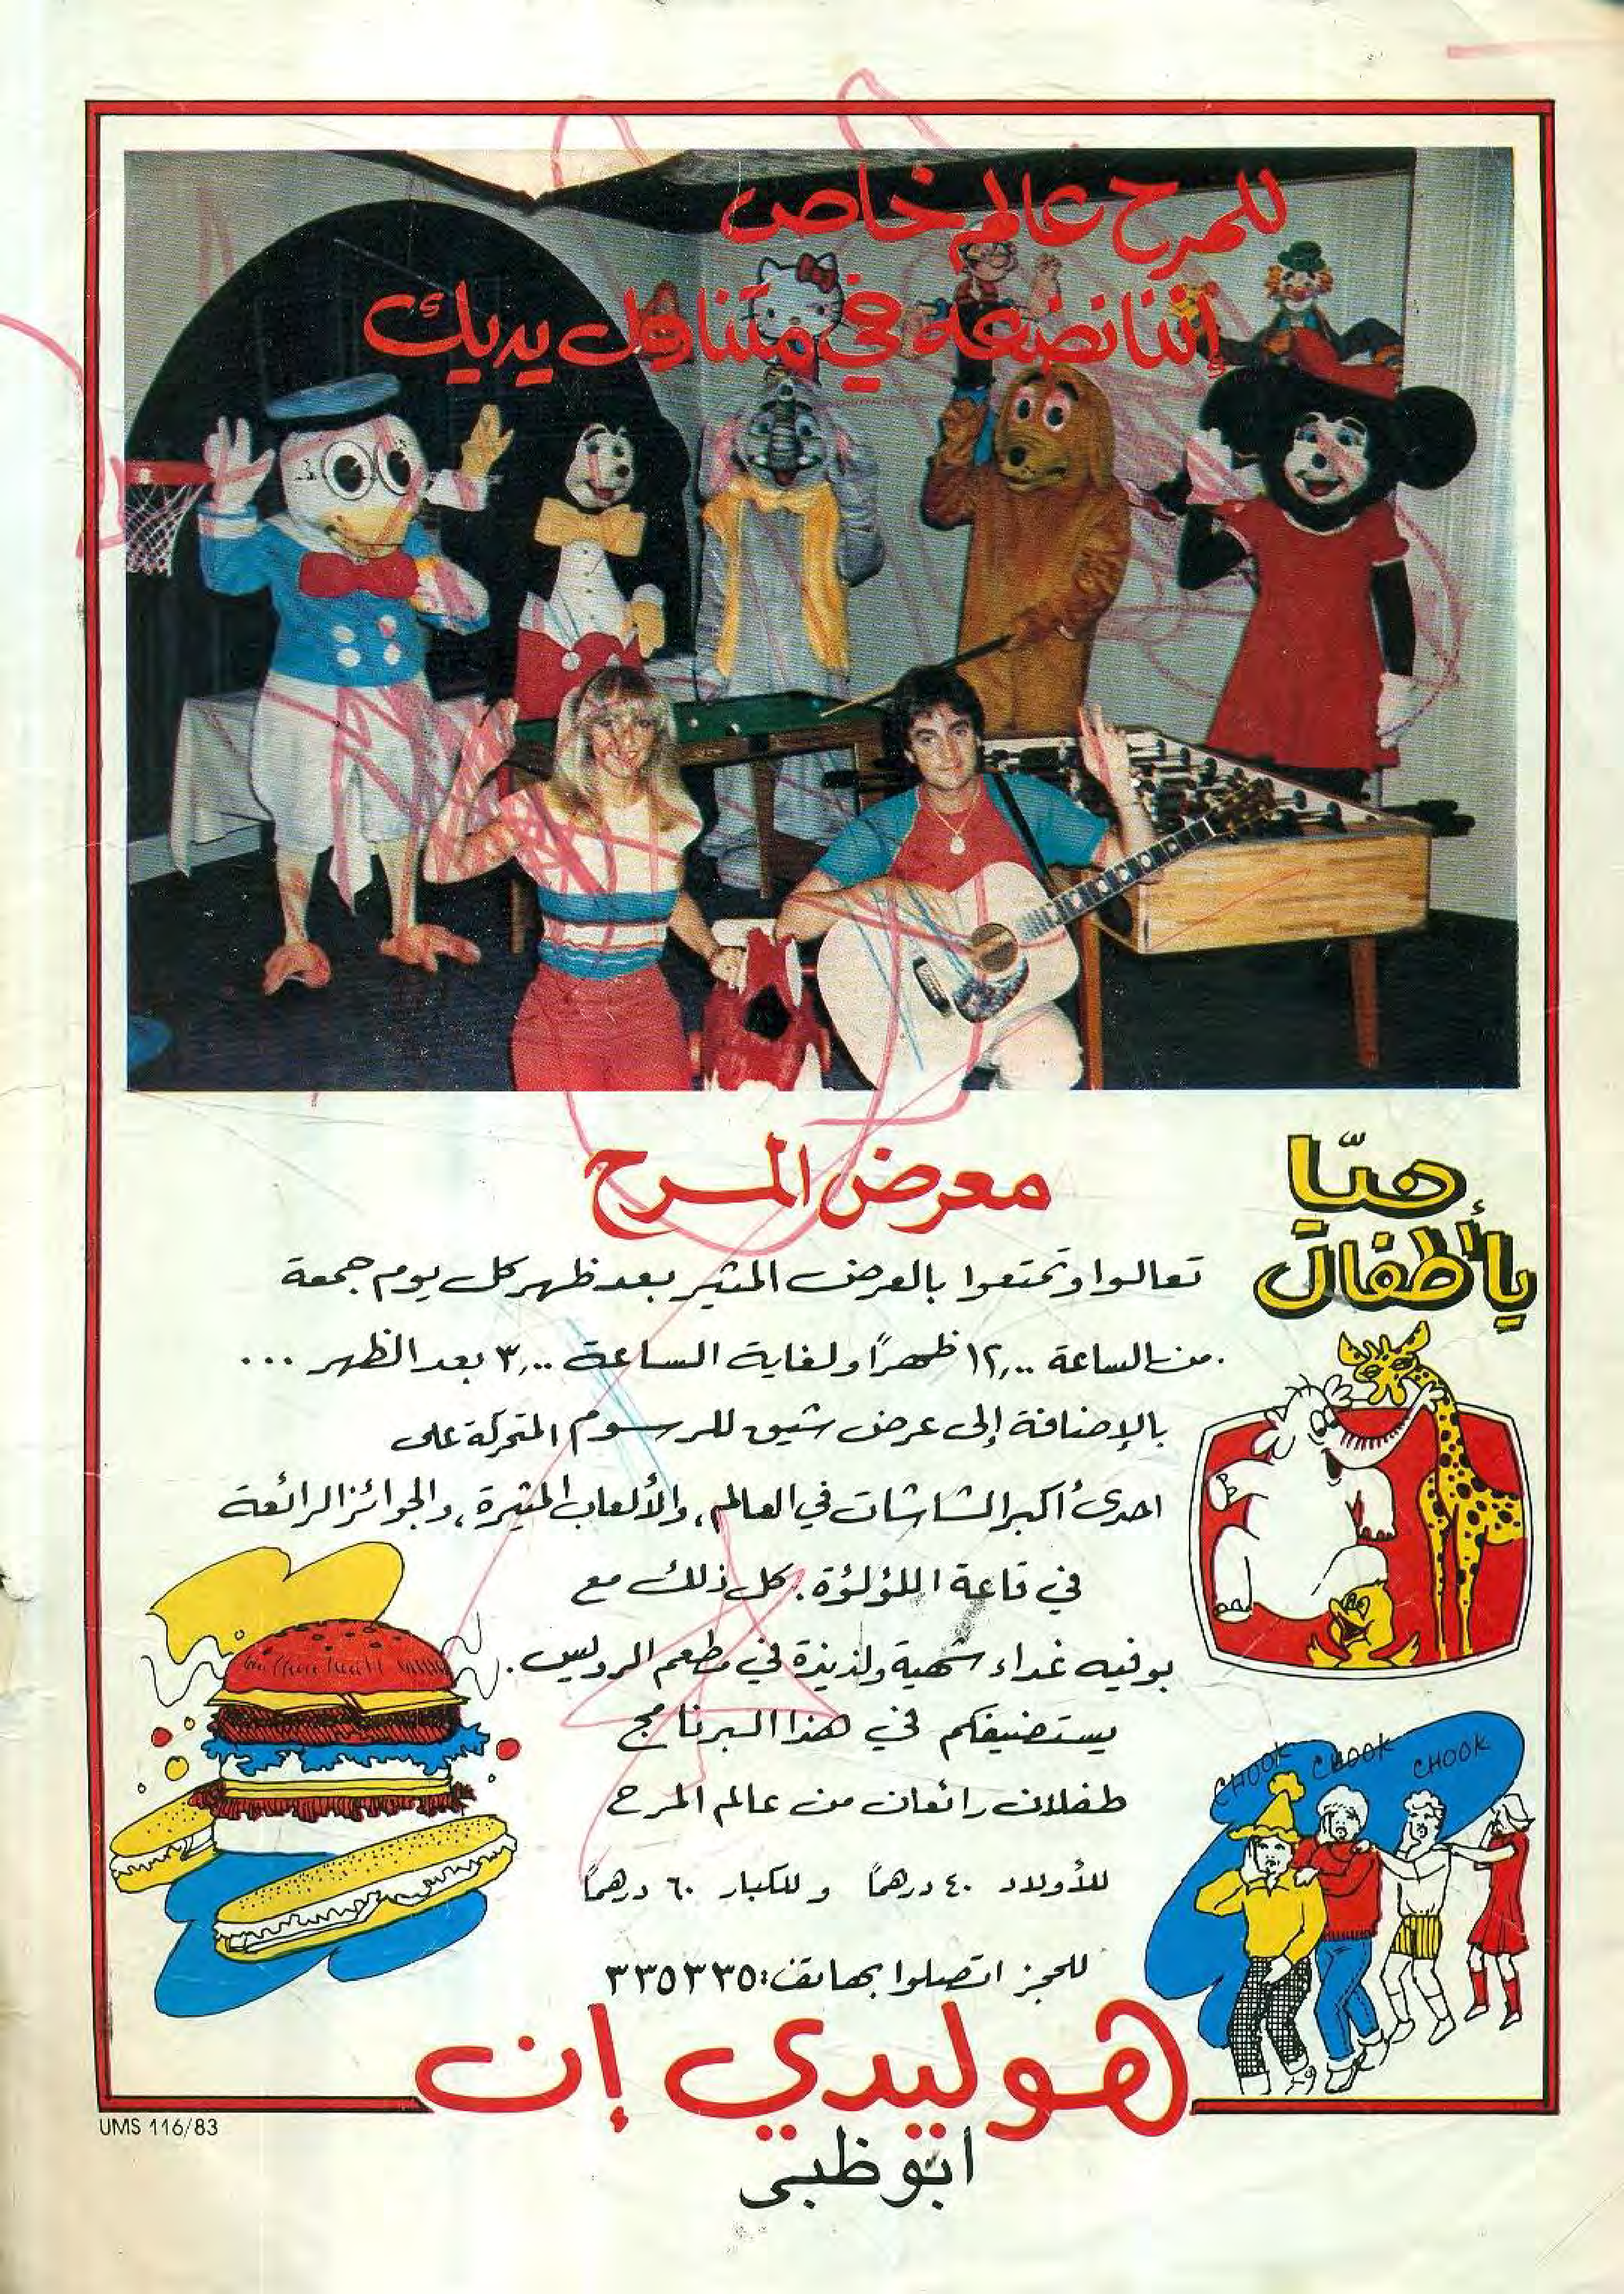 للمرح عالم خاص
إننا نضعه في متناول يديك
معرض المرح
هيّا
يا أطفال
تعالوا وتمتعوا بالعرض المثير بعد ظهر كل يوم جمعة
من الساعة ١٢,٠٠ ظهراً ولغاية الساعة ٣,٠٠ بعد الظهر ...
بالإضافة إلى عرض شيق للرسوم المتحركة على
احدى أكبر الشاشات في العالم، والألعاب المثيرة، والجوائز الرائعة
في قاعة اللؤلؤة. كل ذلك مع
بوفيه غداء شهية ولذيذة في مطعم الرويس.
يستضيفكم في هذا البرنامج
طفلان رائعان من عالم المرح
CHOOK CHOOK CHOOK
للأولاد ٤٠ درهماً وللكبار ٦٠ درهماً
للحجز اتصلوا بهاتف: ٣٣٥٣٣٥
هوليدي إن
أبوظبي
UMS 116/83